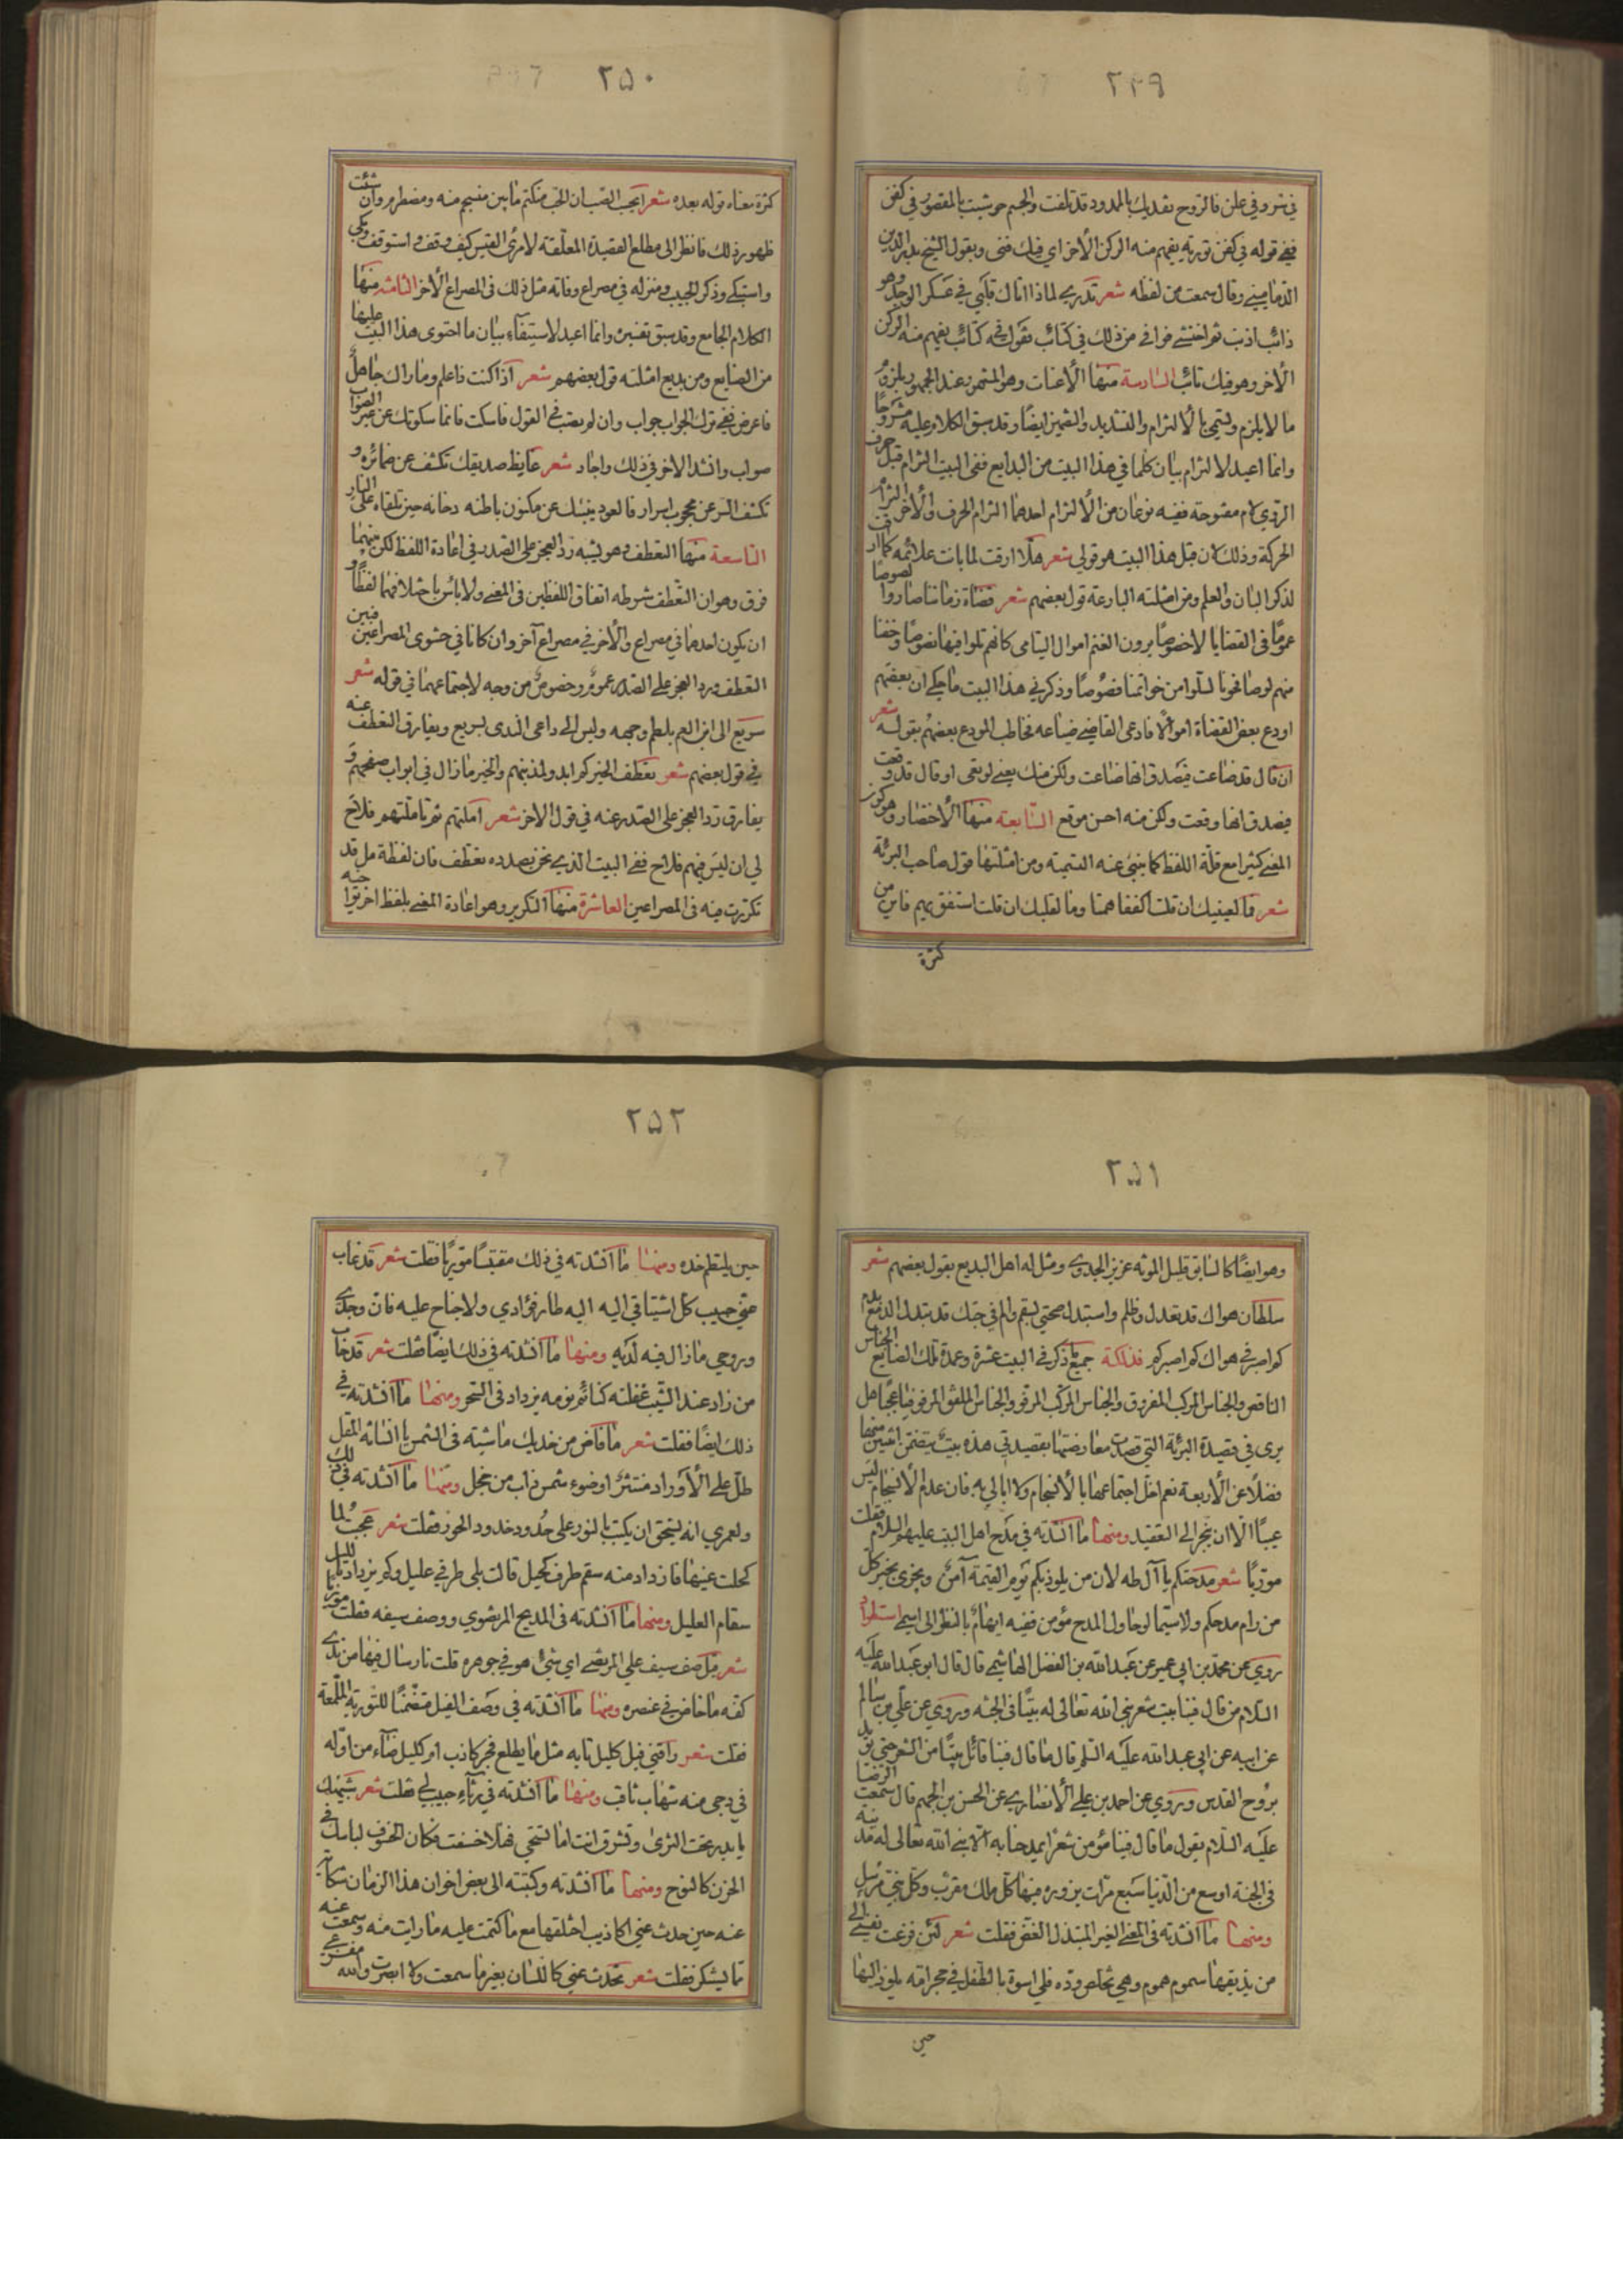 ٢٤٩
في سر وفي علن فالروح تفديك بالممدود قد تلفت والجسم حوشيت بالمقصور في كفن
ففي قوله في كفن تورية يفهم منه الركن الاخر اي فيك فنى وبقول الشيخ بدر الدين
الدماميني وقال سمعت من لفظه شعر تدري لماذا اتاك قلبي في عسكر الوجد وهو
ذائب اذنب ثم اختشى فوافى من ذلك في كتائب فقوله في كتائب يفهم منه الركن
الاخر وهو فيك تائب السادسة منها الاعنات وهو المشهور عند الجمهور بلزوم
ما لا يلزم ويسمى بالالتزام والتشديد والتضمين ايضا وقد سبق الكلام عليه مشروحا
وانما اعيد الالتزام بيان كلما في هذا البيت من البدايع ففى البيت التزام قبل حرف
الروي لام مفتوحة ففيه نوعان من الالتزام احدهما التزام الحرف والاخر التزام
الحركة وذلك لان قبل هذا البيت هو قولي شعر هلا ارقت لما بانت علائمه كما ارقت
لذكر البان والعلم ومن امثلته البارعة قول بعضهم شعر قضاة زماننا صاروا لصوصا
عموما في القضايا لا خصوصا يرون الغنم اموال اليتامى كانهم تلوا فيها نصوصا وخفنا
منهم لو صافحونا لسلوا من خواتمنا فصوصا وذكرني هذا البيت ما حكي ان بعضهم
اودع بعض القضاة اموالا فادعى القاضي ضياعه فخاطب المودع بعضهم بقوله شعر
ان قال قد ضاعت فيصدق انها ضاعت ولكن منك يعني لو تعى او قال قد وقعت
فيصدق انها وقعت ولكن منه احسن موقع السابعة منها الاختصار وهو كون
المعنى كثيرا مع قلة اللفظ كما ينبئ عنه التسمية ومن امثلتها قول صاحب البرئة
شعر فما لعينيك ان قلت اكففا همتا وما لقلبك ان قلت استفق يهم فاين من
كثرة
٢٥٠
كثرة معناه قوله بعده شعر ايحسب الصب ان الحب منكتم ما بين منسجم منه ومضطرم وان شئت
ظهور ذلك فانظر الى مطلع القصيدة المعلقة لامرئ القيس كيف وقف واستوقف وبكى
واستبكى وذكر الحبيب ومنزله في مصراع وفاته مثل ذلك في المصراع الاخر الثامنة منها
الكلام الجامع وقد سبق تفسيره وانما اعيد لاستيفاء بيان ما احتوى هذا البيت عليها
من الصنايع ومن بديع امثلته قول بعضهم شعر اذا كنت ذا علم وماراك جاهل
فاعرض ففي ترك الجواب جواب وان لم يصب في القول فاسكت فانما سكوتك عن غير الصواب
صواب وانشد الاخر في ذلك واجاد شعر غايظ صديقك تكشف عن ضمائره و
تكشف السر عن محجوب اسرار فالعود ينبئك عن مكنون باطنه دخانه حين تلقاه على النار
التاسعة منها التعطف وهو يشبه رد العجز على الصدر في اعادة اللفظ لكن بينهما
فرق وهو ان التعطف شرطه اتفاق اللفظين في المعنى ولا باس باختلافهما لفظا و
ان يكون احدهما في مصراع والاخر في مصراع آخر وان كانا في حشوى المصراعين فبين
التعطف ورد العجز على الصدر عموم وخصوص من وجه لاجتماعهما في قوله شعر
سريع الى ابن العم يلطم وجهه وليس الى داعي الندى بسريع ويفارق التعطف عنه
في قول بعضهم شعر تعطف الخير كم ابد ولمذنبهم والخير ما زال في ابواب صفحهم و
يفارق رد العجز على الصدر عنه في قول الاخر شعر املتهم ثم تاملتهم فلاح
لي ان ليس فيهم فلاح ففي البيت الذي نحن بصدده تعطف فان لفظة مل قد
تكررت فيه في المصراعين العاشرة منها التكرير وهو اعادة المعنى بلفظ اخر توا خيه
٢٥١
وهو ايضا كالسابق قليل المونه عزيز الجدوى ومثل له اهل البديع بقول بعضهم شعر
سلطان هواك قد تعدل وظلم واستبدل صحتي بسقم والم في حبك قد تبدل الدمع بدم
كم اصبر في هواك كم اصبر كم فذلكة جميع ما ذكر في البيت عشرة وعمدة تلك الصنايع الجناس
الناقص والجناس المركب المفروق والجناس المركب المرفو والجناس الملفق المرفو فيا عجبا هل
يرى في قصيدة البرئة التي قصدت معارضتها بقصيدتي هذه بيت يتضمن اثنين منها
فضلا عن الاربعة نعم اخل اجتماعها بالانسجام ولا ابالي به فان عدم الانسجام ليس
عيبا الا ان ينجر الى التعقيد ومنها ما انشدته في مدح اهل البيت عليهم السلام فقلت
موريا شعر مدحتكم يا آل طه لان من يلوذ بكم يوم القيمة آمن ويجزى بخير كل
من رام مدحكم ولاسيما لو حاول المدح مؤمن ففيه ايهام بالنظر الى اسمي استطراد
روي عن محمد بن ابي عمير عن عبد الله بن الفضل الهاشمي قال قال ابو عبد الله عليه
السلام من قال فينا بيت شعر بنى الله تعالى له بيتا في الجنة وروي عن علي بن سالم
عن ابيه عن ابي عبد الله عليه السلم قال ما قال فينا قائل بيتا من الشعر حتى يؤيد
بروح القدس وروي عن احمد بن علي الانصاري عن الحسن بن الجهم قال سمعت الرضا
عليه السلام يقول ما قال فينا مؤمن شعرا يمدحنا به الا بنى الله تعالى له مدينة
في الجنة اوسع من الدنيا سبع مرات يزوره فيها كل ملك مقرب وكل نبي مرسل
ومنها ما انشدته في المعنى الغير المبتذل الغض فقلت شعر لئن فزعت نفسي الى
من يذيقها سموم هموم وهي تخلص وده فلي اسوة بالطفل في حجر امه يلوذ اليها
حين
٢٥٢
حين يلتطم خده ومنها ما انشدته في ذلك مقتبسا موريا فقلت شعر قد غاب
عني حبيب كل اشتياقي اليه اليه طار فؤادي ولا جناح عليه فان وجدي
وروحي مازال فيه لديه ومنها ما انشدته في ذلك ايضا فقلت شعر قد خاب
من زاد عند الشيب غفلته كنائم نومه يزداد في السحر ومنها ما انشدته في
ذلك ايضا فقلت شعر ما فاض من خديك ما شبته في الشمس يا انسانة المقل
طل على الاوراد منتثر او ضوء شمس ذاب من خجل ومنها ما انشدته في ذلك
ولعمري انه يستحق ان يكتب بالنور على خدود خدود الحور فقلت شعر عجبت لما
كحلت عينها فازداد منه سقم طرف كحيل قالت بلى طرفي عليل وكم يزداد بالليل
سقام العليل ومنها ما انشدته في المديح المرتضوي ووصف سيفه فقلت موريا
شعر قيل صف سيف علي المرتضى اي شيء هو في جوهره قلت نار سال فيها من ندى
كفه ما خاض في عنصره ومنها ما انشدته في وصف الليل متضمنا للتورية الملمعة
فقلت شعر راقني قبل كليل نابه مثل ما يطلع فجر كاذب ام كليل ضاء من اوله
في دجى منه شهاب ثاقب ومنها ما انشدته في رثاء حبيب لي فقلت شعر شيمتك
يا بدر تحت الثرى وتشرق انت اما تستحي فهلا خسفت فكان الخسوف لباسك في
الحزن كالنوح ومنها ما انشدته وكتبته الى بعض اخوان هذا الزمان شكاية
عنه حين حدث عني اكاذيب اختلقها مع ما كتمت عليه ما رايت منه وسمعت عنه
فقلت شعر تحدث عني كاللسان بغير ما سمعت ولا ابصرت والله